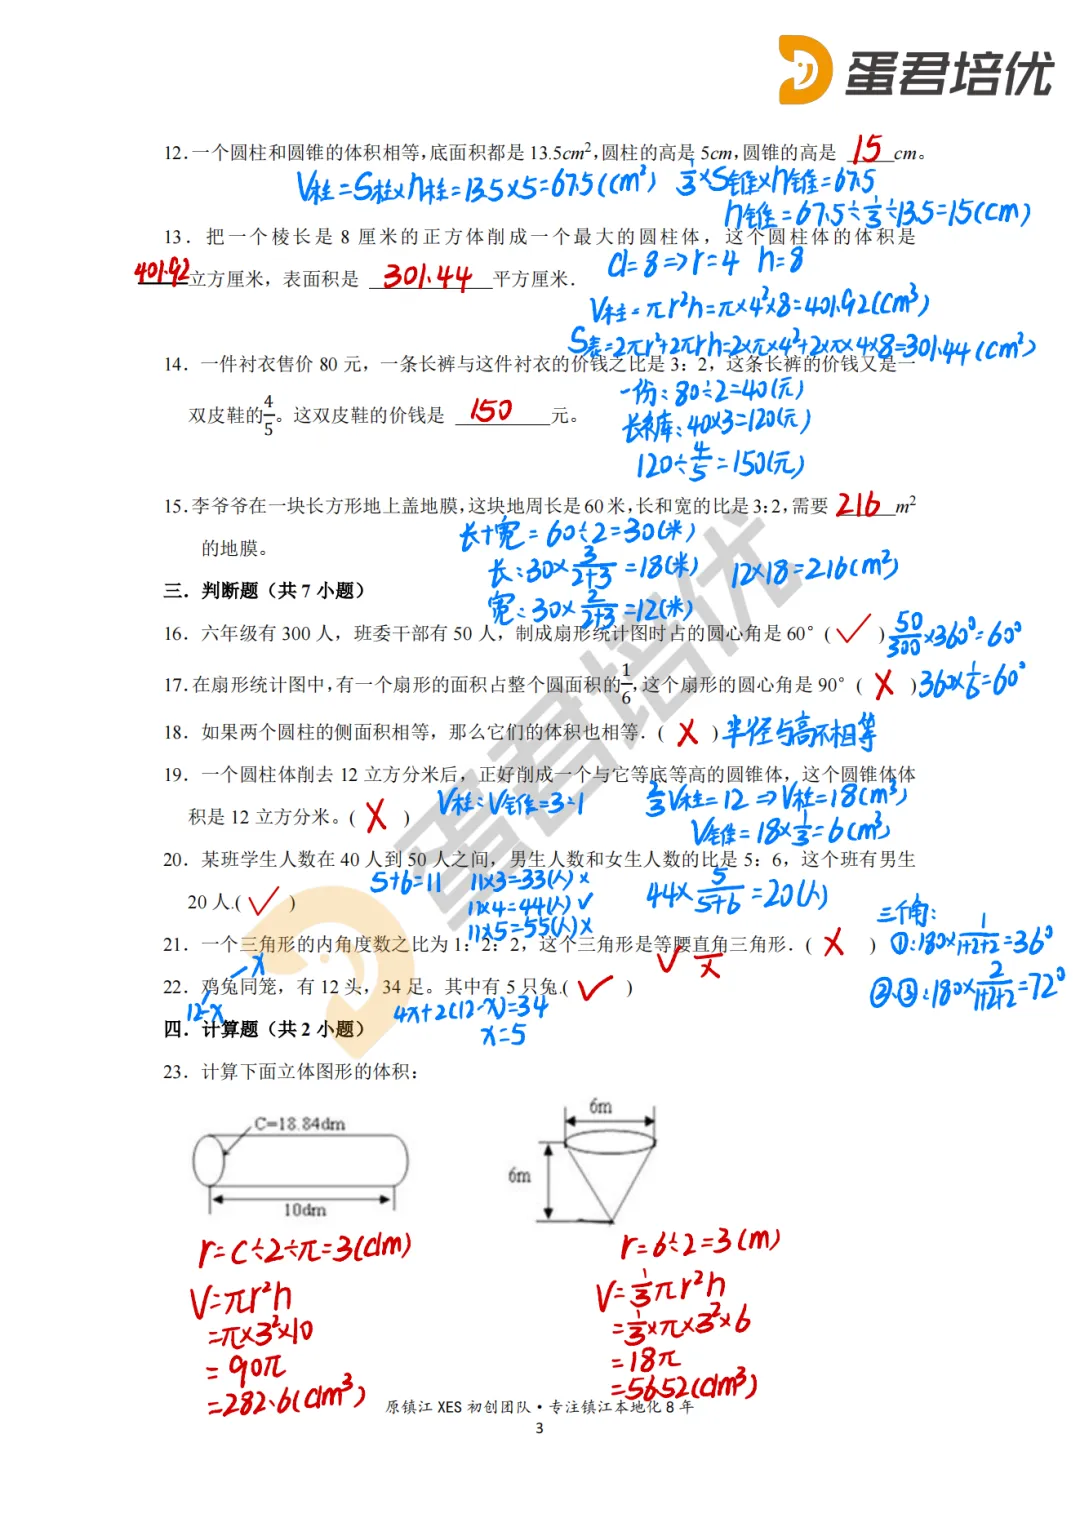 蛋君培优
12.一个圆柱和圆锥的体积相等,底面积都是 13.5cm²,圆柱的高是 5cm,圆锥的高是 15 cm。
V柱=S柱×h柱=13.5×5=67.5(cm²) 1/3×S锥×h锥=67.5
h锥=67.5÷1/3÷13.5=15(cm)
13. 把一个棱长是 8 厘米的正方体削成一个最大的圆柱体，这个圆柱体的体积是
d=8=>r=4 h=8
401.92 立方厘米，表面积是 301.44 平方厘米.
V柱=πr²h=π×4²×8=401.92(cm³)
S表=2πr²+2πrh=2×π×4²+2×π×4×8=301.44(cm²)
14. 一件衬衣售价 80 元，一条长裤与这件衬衣的价钱之比是 3：2，这条长裤的价钱又是一
一份:80÷2=40(元)
双皮鞋的4/5。这双皮鞋的价钱是 150 元。
长裤:40×3=120(元)
120÷4/5=150(元)
15.李爷爷在一块长方形地上盖地膜,这块地周长是 60 米,长和宽的比是 3:2,需要 216 m²
长+宽=60÷2=30(米)
的地膜。
长:30×3/2+3=18(米) 12×18=216(m²)
三．判断题（共 7 小题）
宽:30×2/2+3=12(米)
16. 六年级有 300 人，班委干部有 50 人，制成扇形统计图时占的圆心角是 60° ( ✓ ) 50/300×360°=60°
17.在扇形统计图中,有一个扇形的面积占整个圆面积的1/6,这个扇形的圆心角是 90° ( × ) 360×1/6=60°
18. 如果两个圆柱的侧面积相等，那么它们的体积也相等. ( × ) 半径与高不相等
19. 一个圆柱体削去 12 立方分米后，正好削成一个与它等底等高的圆锥体，这个圆锥体体
积是 12 立方分米。( × ) V柱:V锥=3:1 2/3V柱=12=>V柱=18(m³)
V锥=18×1/3=6(m³)
20. 某班学生人数在 40 人到 50 人之间，男生人数和女生人数的比是 5：6，这个班有男生
5+6=11 11×3=33(人)×
20 人.( ✓ ) 11×4=44(人)✓ 44×5/5+6=20(人)
11×5=55(人)×
21. 一个三角形的内角度数之比为 1：2：2，这个三角形是等腰直角三角形. ( × )
✓ ×
三个角:
①:180×1/1+2+2=36°
②、③:180×2/1+2+2=72°
22. 鸡兔同笼，有 12 头，34 足。其中有 5 只兔.( ✓ )
-x
12-x 4x+2(12-x)=34
x=5
四．计算题（共 2 小题）
23. 计算下面立体图形的体积:
C=18.84dm
10dm
6m
6m
r=C÷2÷π=3(dm)
V=πr²h
=π×3²×10
=90π
=282.6(dm³)
r=6÷2=3(m)
V=1/3πr²h
=1/3×π×3²×6
=18π
=56.52(dm³)
原镇江 XES 初创团队•专注镇江本地化 8 年
3
蛋君培优